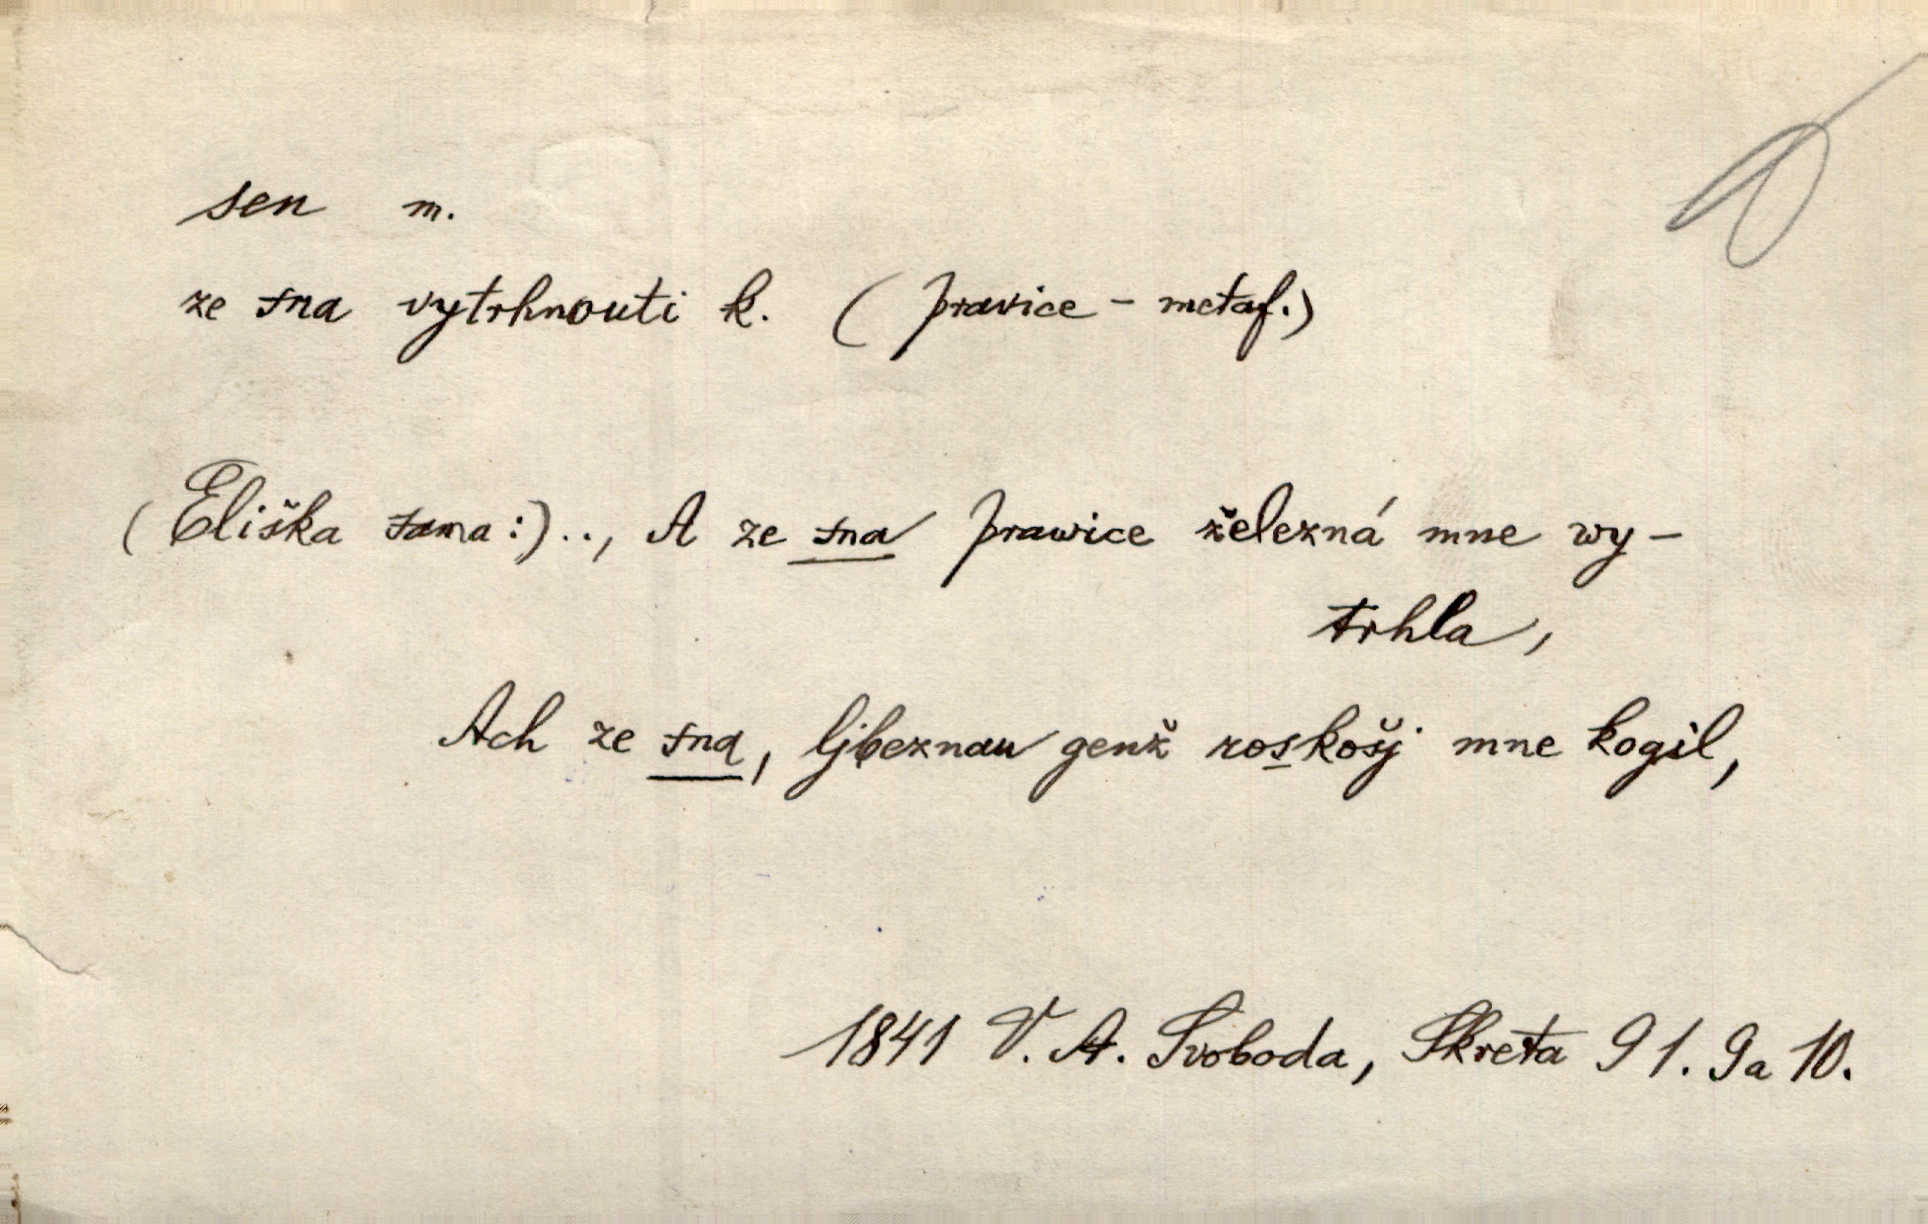 sen m.
ze sna vytrhnouti k. (pravice - metaf.)
(Eliška sama:).., A ze sna prawice železná mne wy-
trhla,
Ach ze sna, ljbeznau genž roskošj mne kogil,
1841 V. A. Svoboda, Skreta 91. 9a 10.